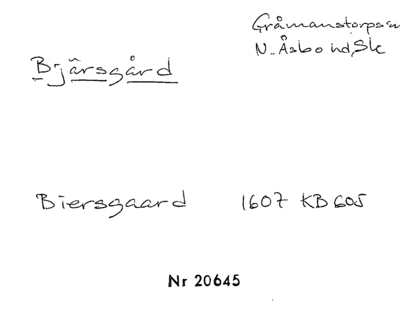 Gråmanstorps sn
N. Åsbo hd, Sk
Bjärsgård
Biersgaard 1607 KB 605
Nr 20645